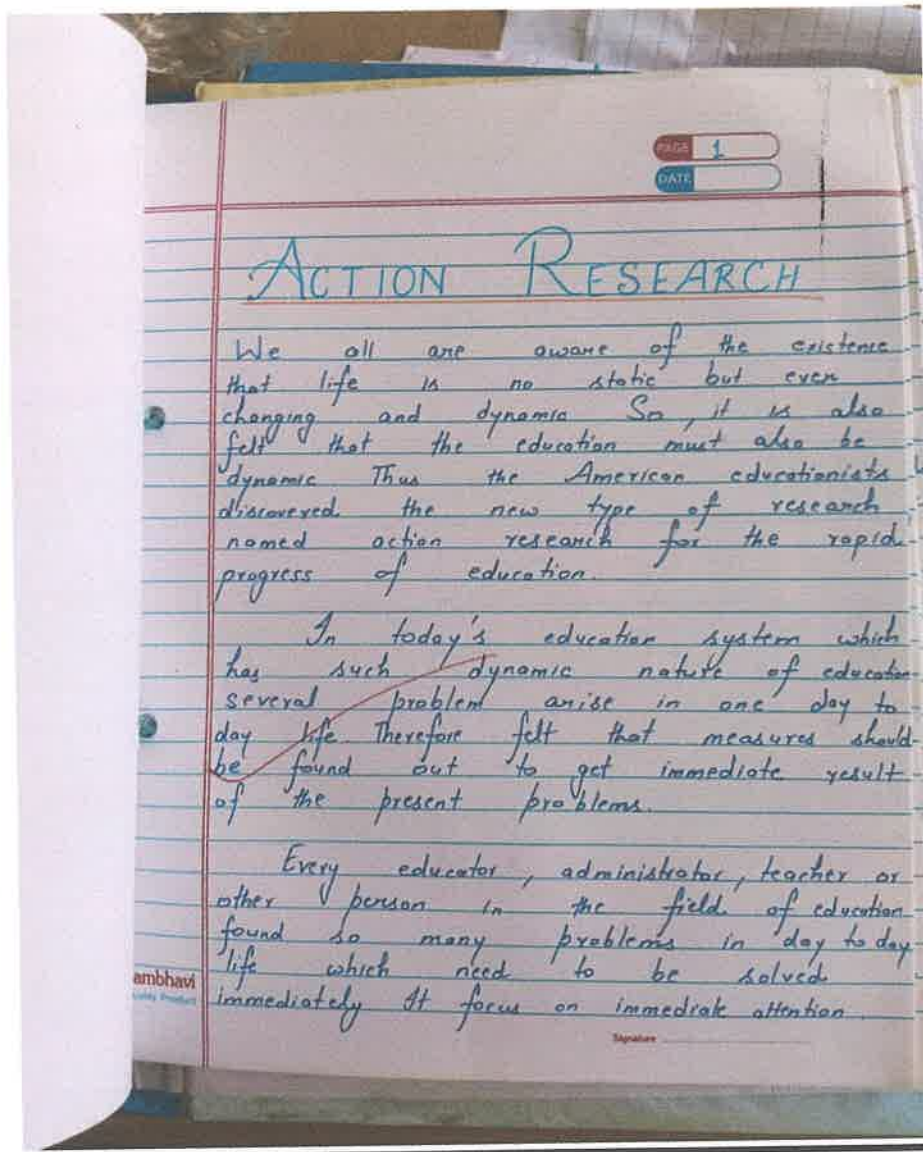 PAGE 1
DATE
ACTION RESEARCH
We all are aware of the existence
that life is no static but even
changing and dynamic So, it is also
felt that the education must also be
dynamic Thus the American educationists
discovered the new type of research
named action research for the rapid
progress of education.
In today's education system which
has such dynamic nature of education
several problem arise in one day to
day life Therefore felt that measures should
be found out to get immediate result
of the present problems.
Every educator, administrator, teacher or
other person in the field of education
found so many problems in day to day
life which need to be solved
immediately It focus on immediate attention
ambhavi
Product
Signature